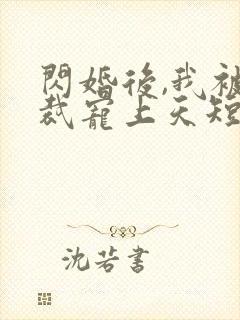 閃婚後,我被
裁寵上天短
沈若書